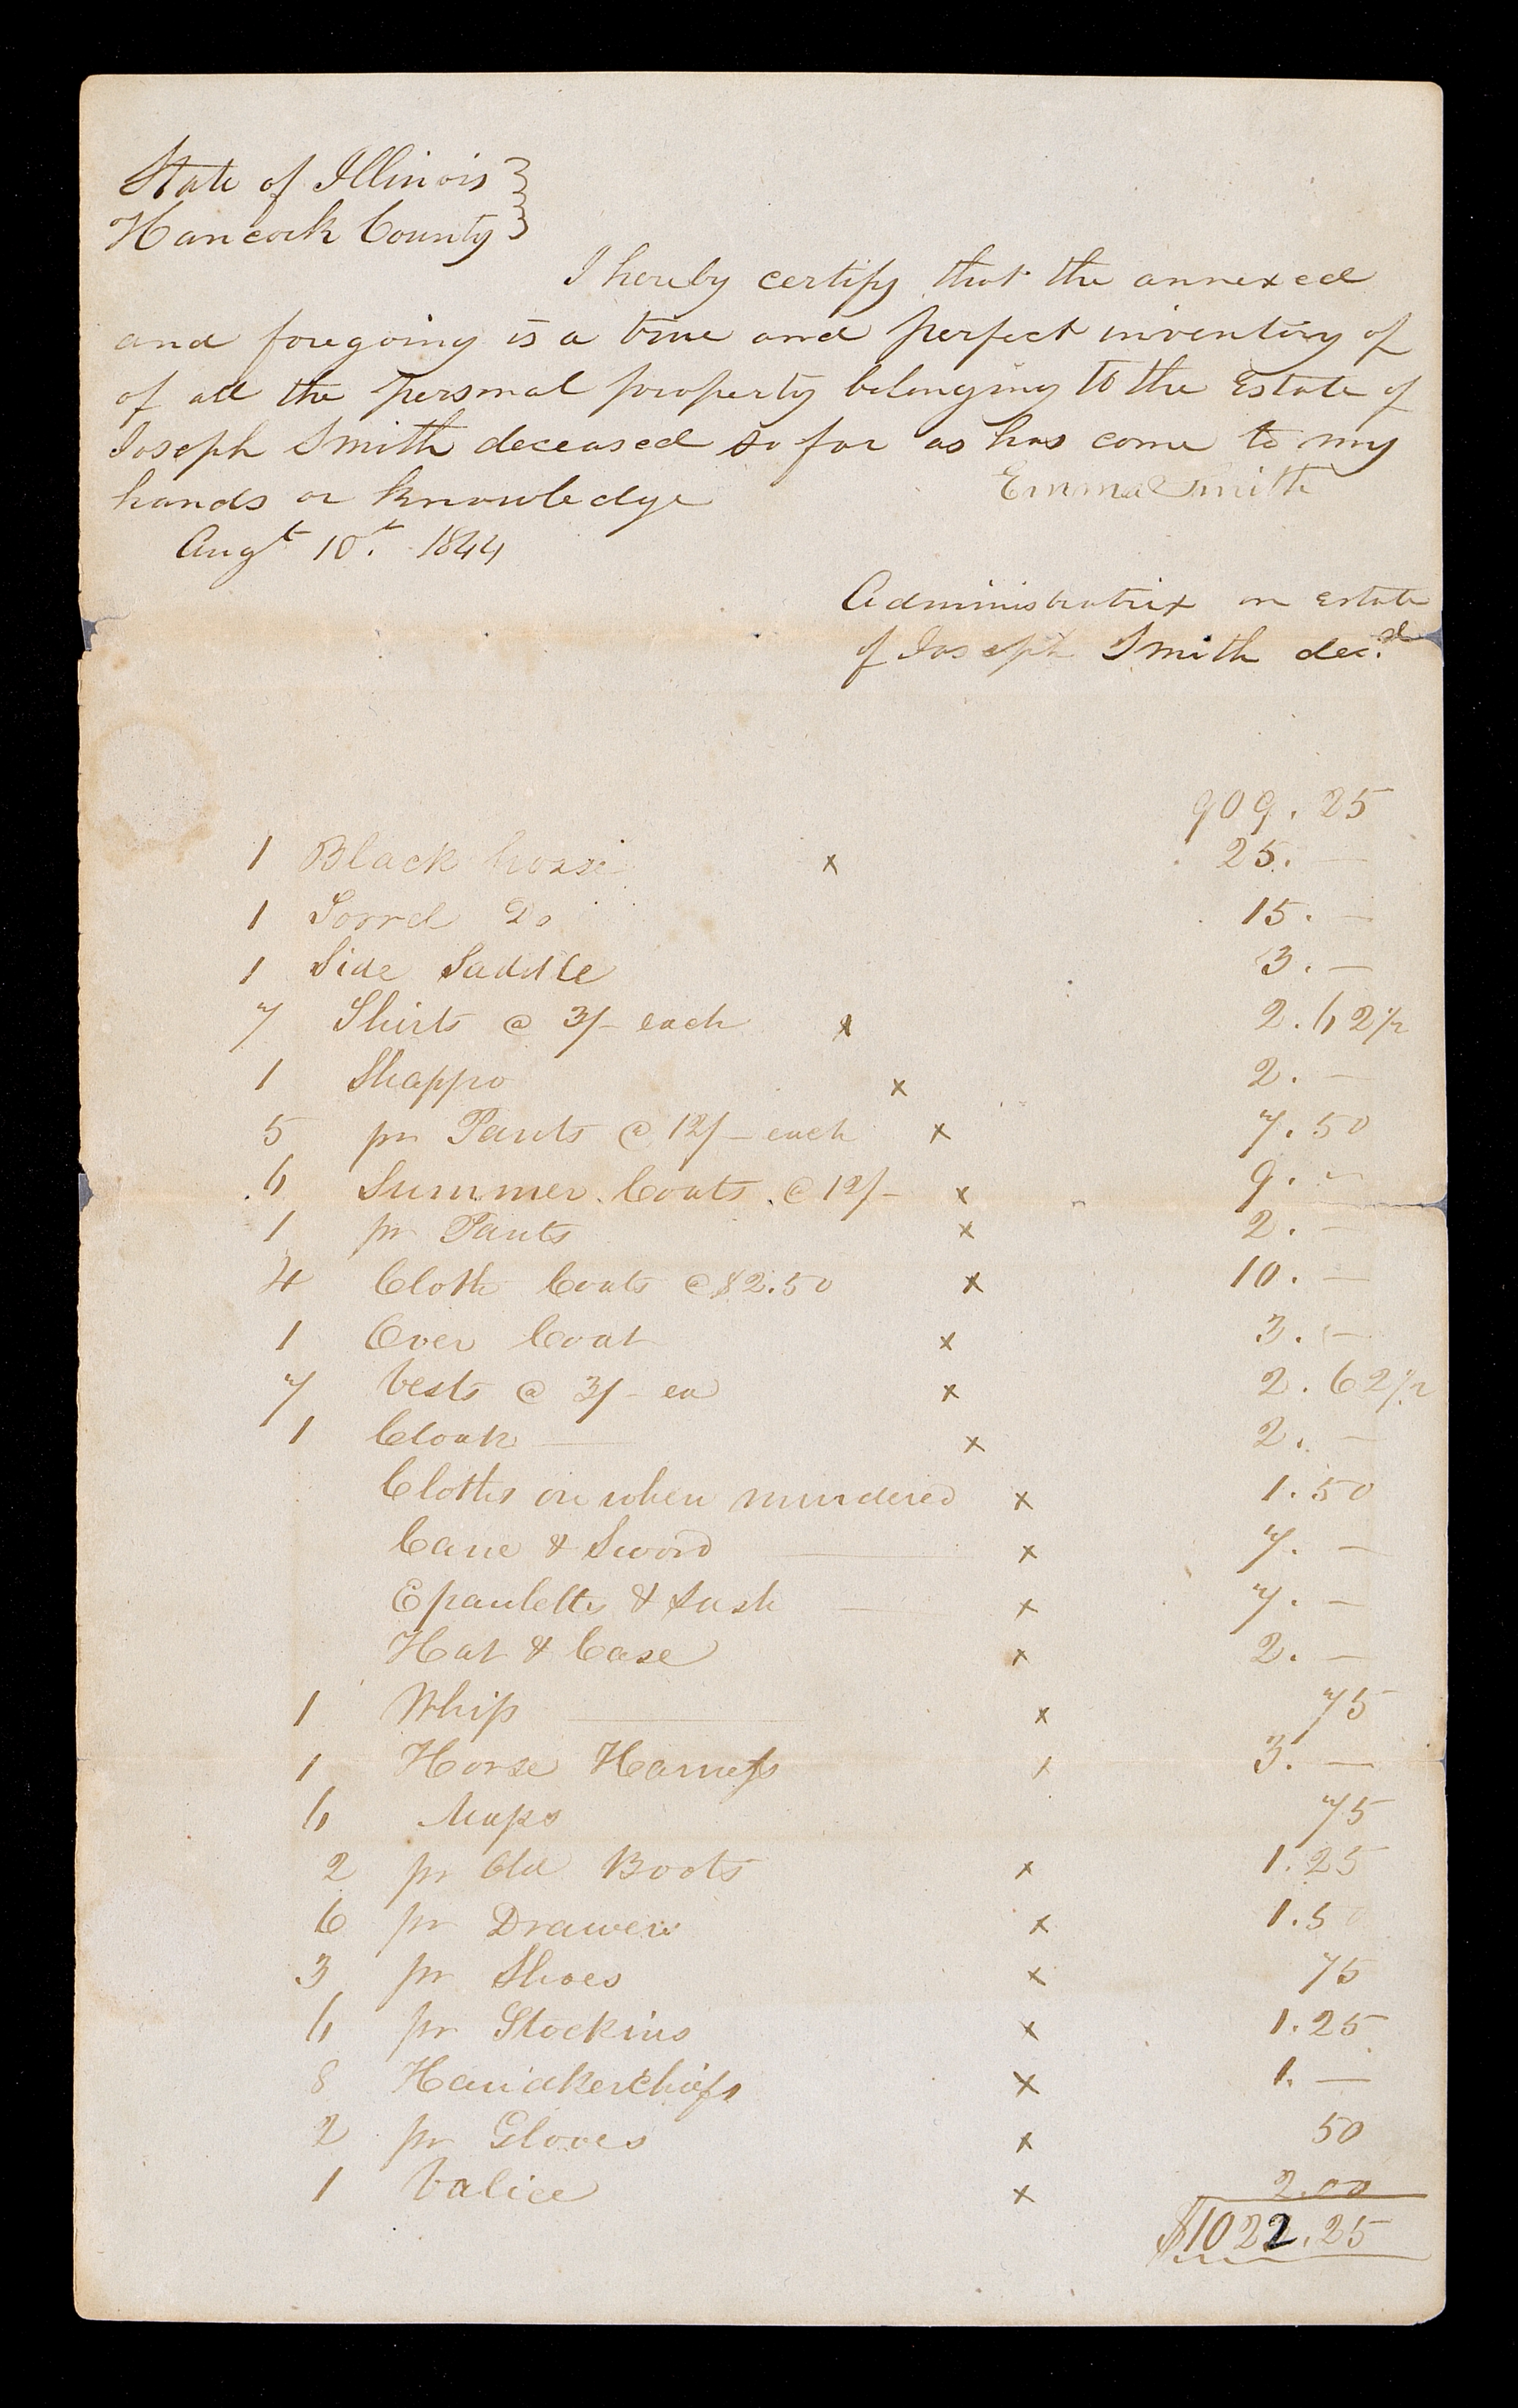 State of Illinois }
Hancock County }
I hereby certify that the annexed
and foregoing is a true and perfect inventory of
of all the personal property belonging to the Estate of
Joseph Smith deceased so far as has come to my
hands or knowledge Emma Smith
Augt 10t. 1844
Administratrix on estate
of Joseph Smith decd.
909.25
1 Black horse x 25. —
1 Sorrel Do 15. —
1 Side Saddle 3. —
7 Shirts @ 3/– each x 2.62½
1 Shappo x 2. —
5 pr Pants @ 12/– each x 7.50
6 Summer Coats @ 12/– x 9. —
1 pr Pants x 2. —
4 Cloth Coats @ $2.50 x 10. —
1 Over Coat x 3. —
7 Vests @ 3/– ea x 2.62½
1 Cloak — x 2. —
Cloths on when murdered x 1.50
Cane & Sword — x 7. —
Epauletts & Sash — x 7. —
Hat & Case x 2. —
1 Whip — x 75
1 Horse Harness x 3. —
6 Maps 75
2 pr Old Boots x 1.25
6 pr Drawers x 1.50
3 pr Shoes x 75
6 pr Stockins x 1.25
8 Handkerchiefs x 1. —
2 pr Gloves x 50
1 Valice x 2.00
$1022.25